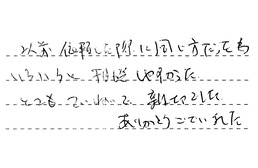 以前依頼した際に同じ方だったも
いろいろと相談しやすかった
とてもていねいで親切でした
ありがとうございました